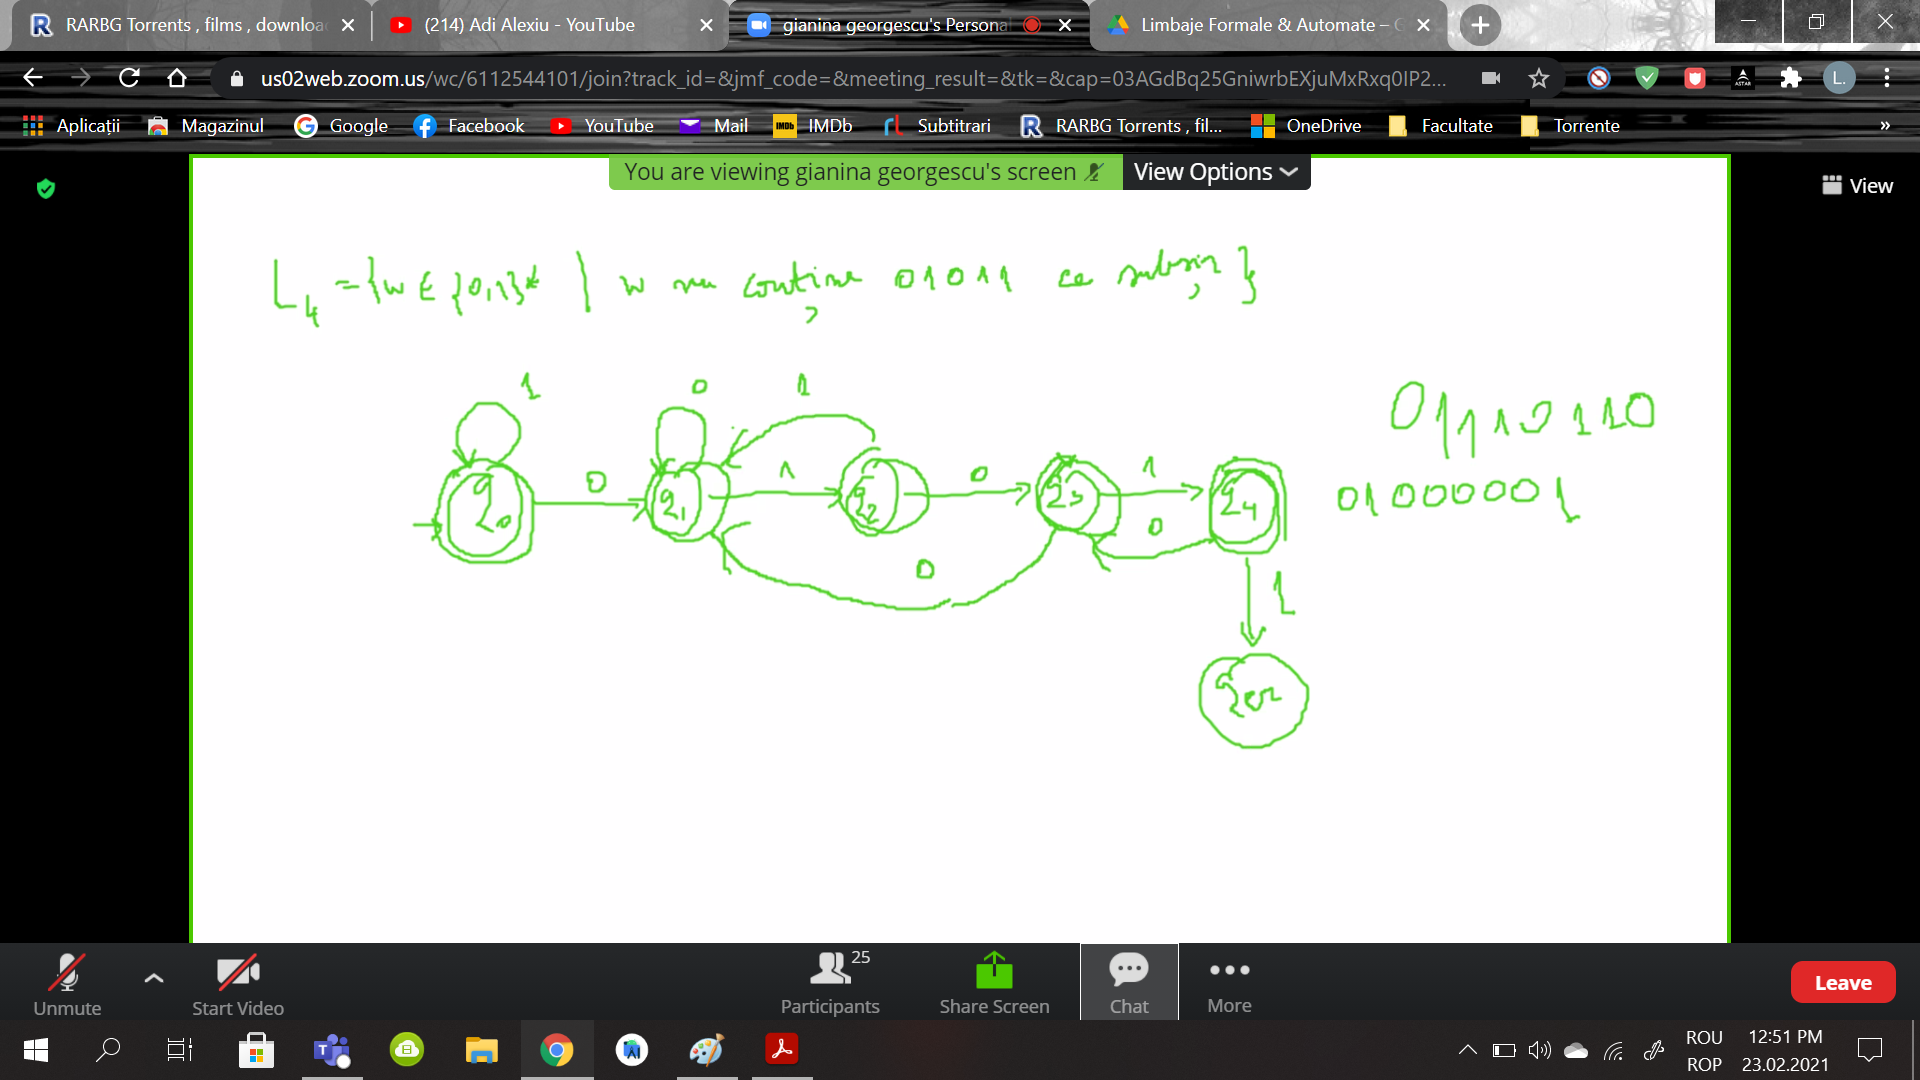 RARBG Torrents , films , downloa
(214) Adi Alexiu - YouTube
gianina georgescu's Persona
Limbaje Formale & Automate –
us02web.zoom.us/wc/6112544101/join?track_id=&jmf_code=&meeting_result=&tk=&cap=03AGdBq25GniwrbEXjuMxRxq0IP2...
L.
Aplicații Magazinul Google Facebook YouTube Mail IMDb Subtitrari RARBG Torrents , fil... OneDrive Facultate Torrente »
You are viewing gianina georgescu's screen View Options
View
L4 = {w ∈ {0,1}* | w nu conține 01011 ca subșir}
1 0 1
01110110
0 1 0 1
q0 q1 q2 q3 q4
01000001
0 0
1
qer
25
Unmute Start Video Participants Share Screen Chat More Leave
ROU 12:51 PM
ROP 23.02.2021